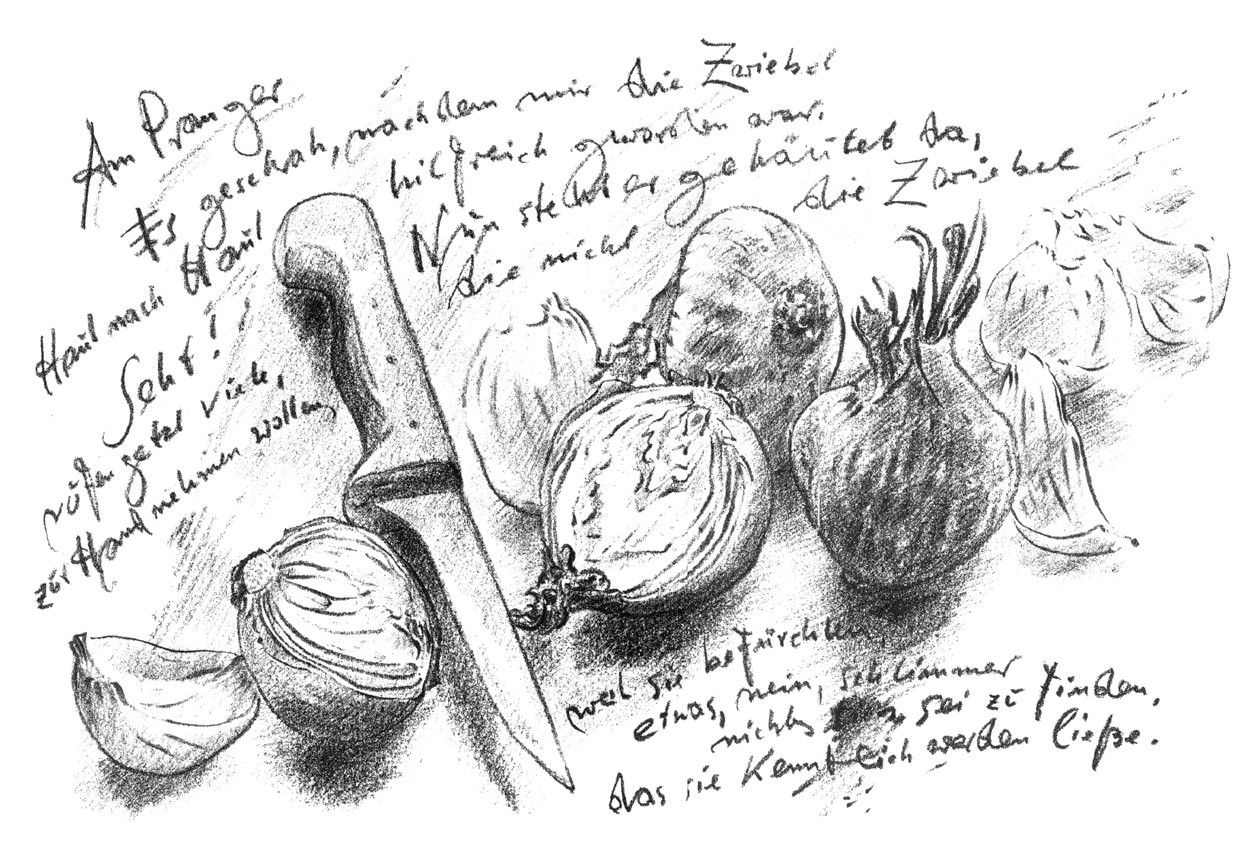 Am Pranger
Es geschah, nachdem mir die Zwiebel
Haut nach Haut hilfreich geworden war.
Seht! Nun steht er gehäutet da,
rufen jetzt viele, die nicht die Zwiebel
zur Hand nehmen wollen,
weil sie befürchten,
etwas, nein, schlimmer
nichts sei zu finden,
das sie kenntlich werden ließe.